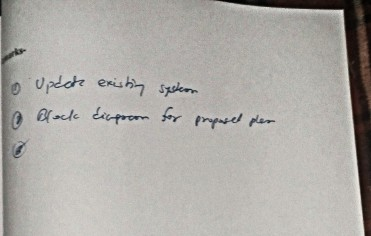 ① Update existing system
② Block diagram for proposed plan
③